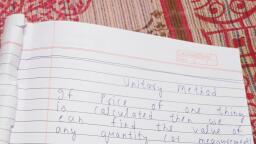 Unitary Method
If Price of one thing
is calculated then we
can find the value of
any quantity (or measurement